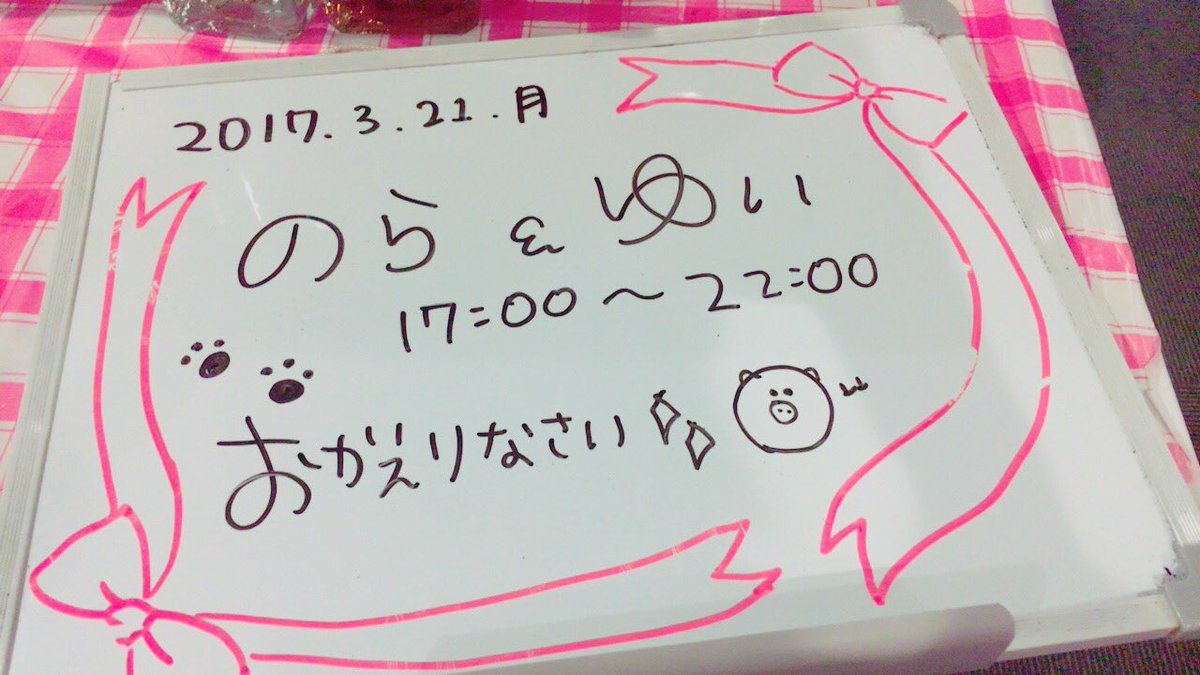 2017.3.21.月
のら & ゆい
17:00〜22:00
おかえりなさい